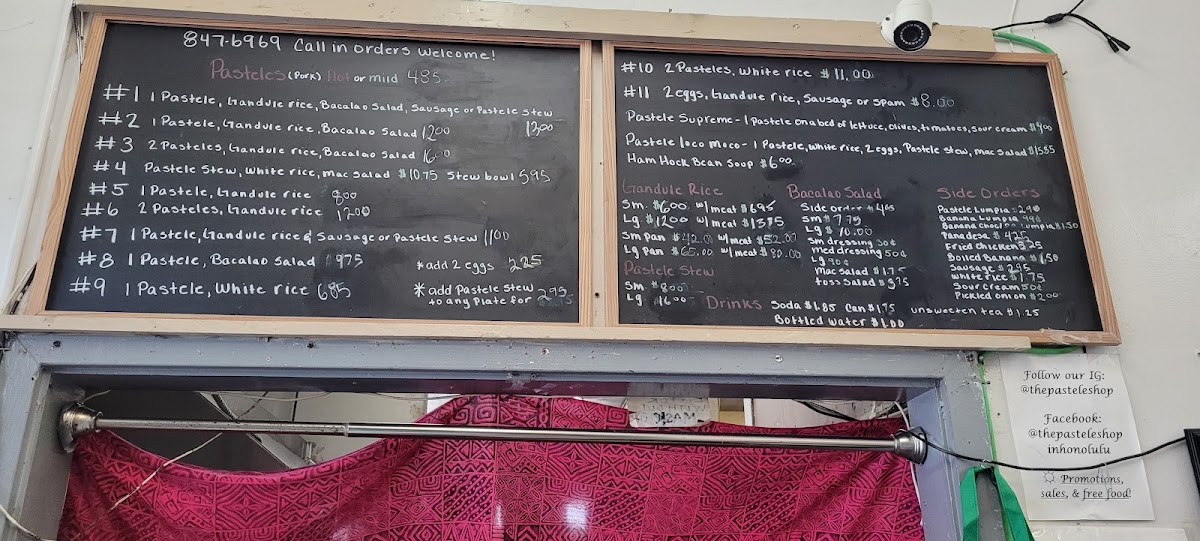 847-6969 Call in orders welcome!
Pasteles (Pork) Hot or mild 485
#1 1 Pastele, Gandule rice, Bacalao Salad, Sausage or Pastele Stew 1300
#2 1 Pastele, Gandule rice, Bacalao Salad 1200
#3 2 Pasteles, Gandule rice, Bacalao Salad 1600
#4 Pastele Stew, White rice, mac Salad $10.75 Stew bowl 595
#5 1 Pastele, Gandule rice 800
#6 2 Pasteles, Gandule rice 1200
#7 1 Pastele, Gandule rice & Sausage or Pastele Stew 1100
#8 1 Pastele, Bacalao Salad 975
*add 2 eggs 225
#9 1 Pastele, White rice 685
*add Pastele Stew 295
to any Plate for
#10 2 Pasteles, white rice $11.00
#11 2 eggs, Gandule rice, Sausage or Spam $8.00
Pastele Supreme - 1 Pastele on a bed of lettuce, olives, tomatoes, sour cream $900
Pastele loco moco - 1 Pastele, white rice, 2 eggs, Pastele stew, mac salad $1585
Ham Hock Bean Soup $600
Gandule Rice
Sm. $600 w/meat $695
Lg $1200 w/meat $1375
Sm Pan $42.00 w/meat $52.00
Lg Pan $65.00 w/meat $80.00
Pastele Stew
Sm. $800
Lg 1600
Bacalao Salad
Side order $405
Sm $7.75
Lg $10.00
Sm dressing 30¢
med dressing 50¢
Lg 90¢
Mac Salad $1.75
Toss Salad $375
Side Orders
Pastele Lumpia $290
Banana Lumpia 99¢
Banana Choc Lumpia $1.50
Panadesa $425
Fried Chicken 325
Boiled Banana $1.50
Sausage $295
White rice $1.75
Sour Cream 50¢
Pickled onion $200
Drinks Soda $1.85 Can $1.75 unsweeten tea $1.25
Bottled water $1.00
Follow our IG:
@thepasteleshop
Facebook:
@thepasteleshop
inhonolulu
Promotions,
sales, & free food!